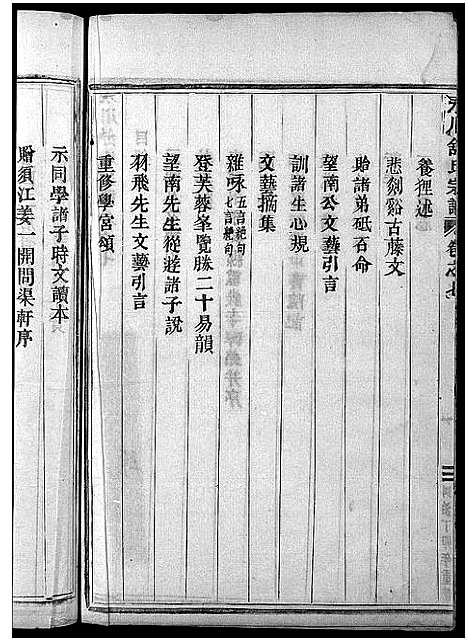 舒氏宗譜 卷之七
養狸述
悲剡谿古藤文
貽諸弟砥石命
望南公文藝引言
訓諸生心規
文藝摘集
雜咏 五言絶句 七言絶句
登芙蓉峯覽勝二十易韻
望南先生從遊諸子說
羽飛先生文藝引言
重修學宮頌
示同學諸子時文讀本
贈須江姜一開問渠軒序